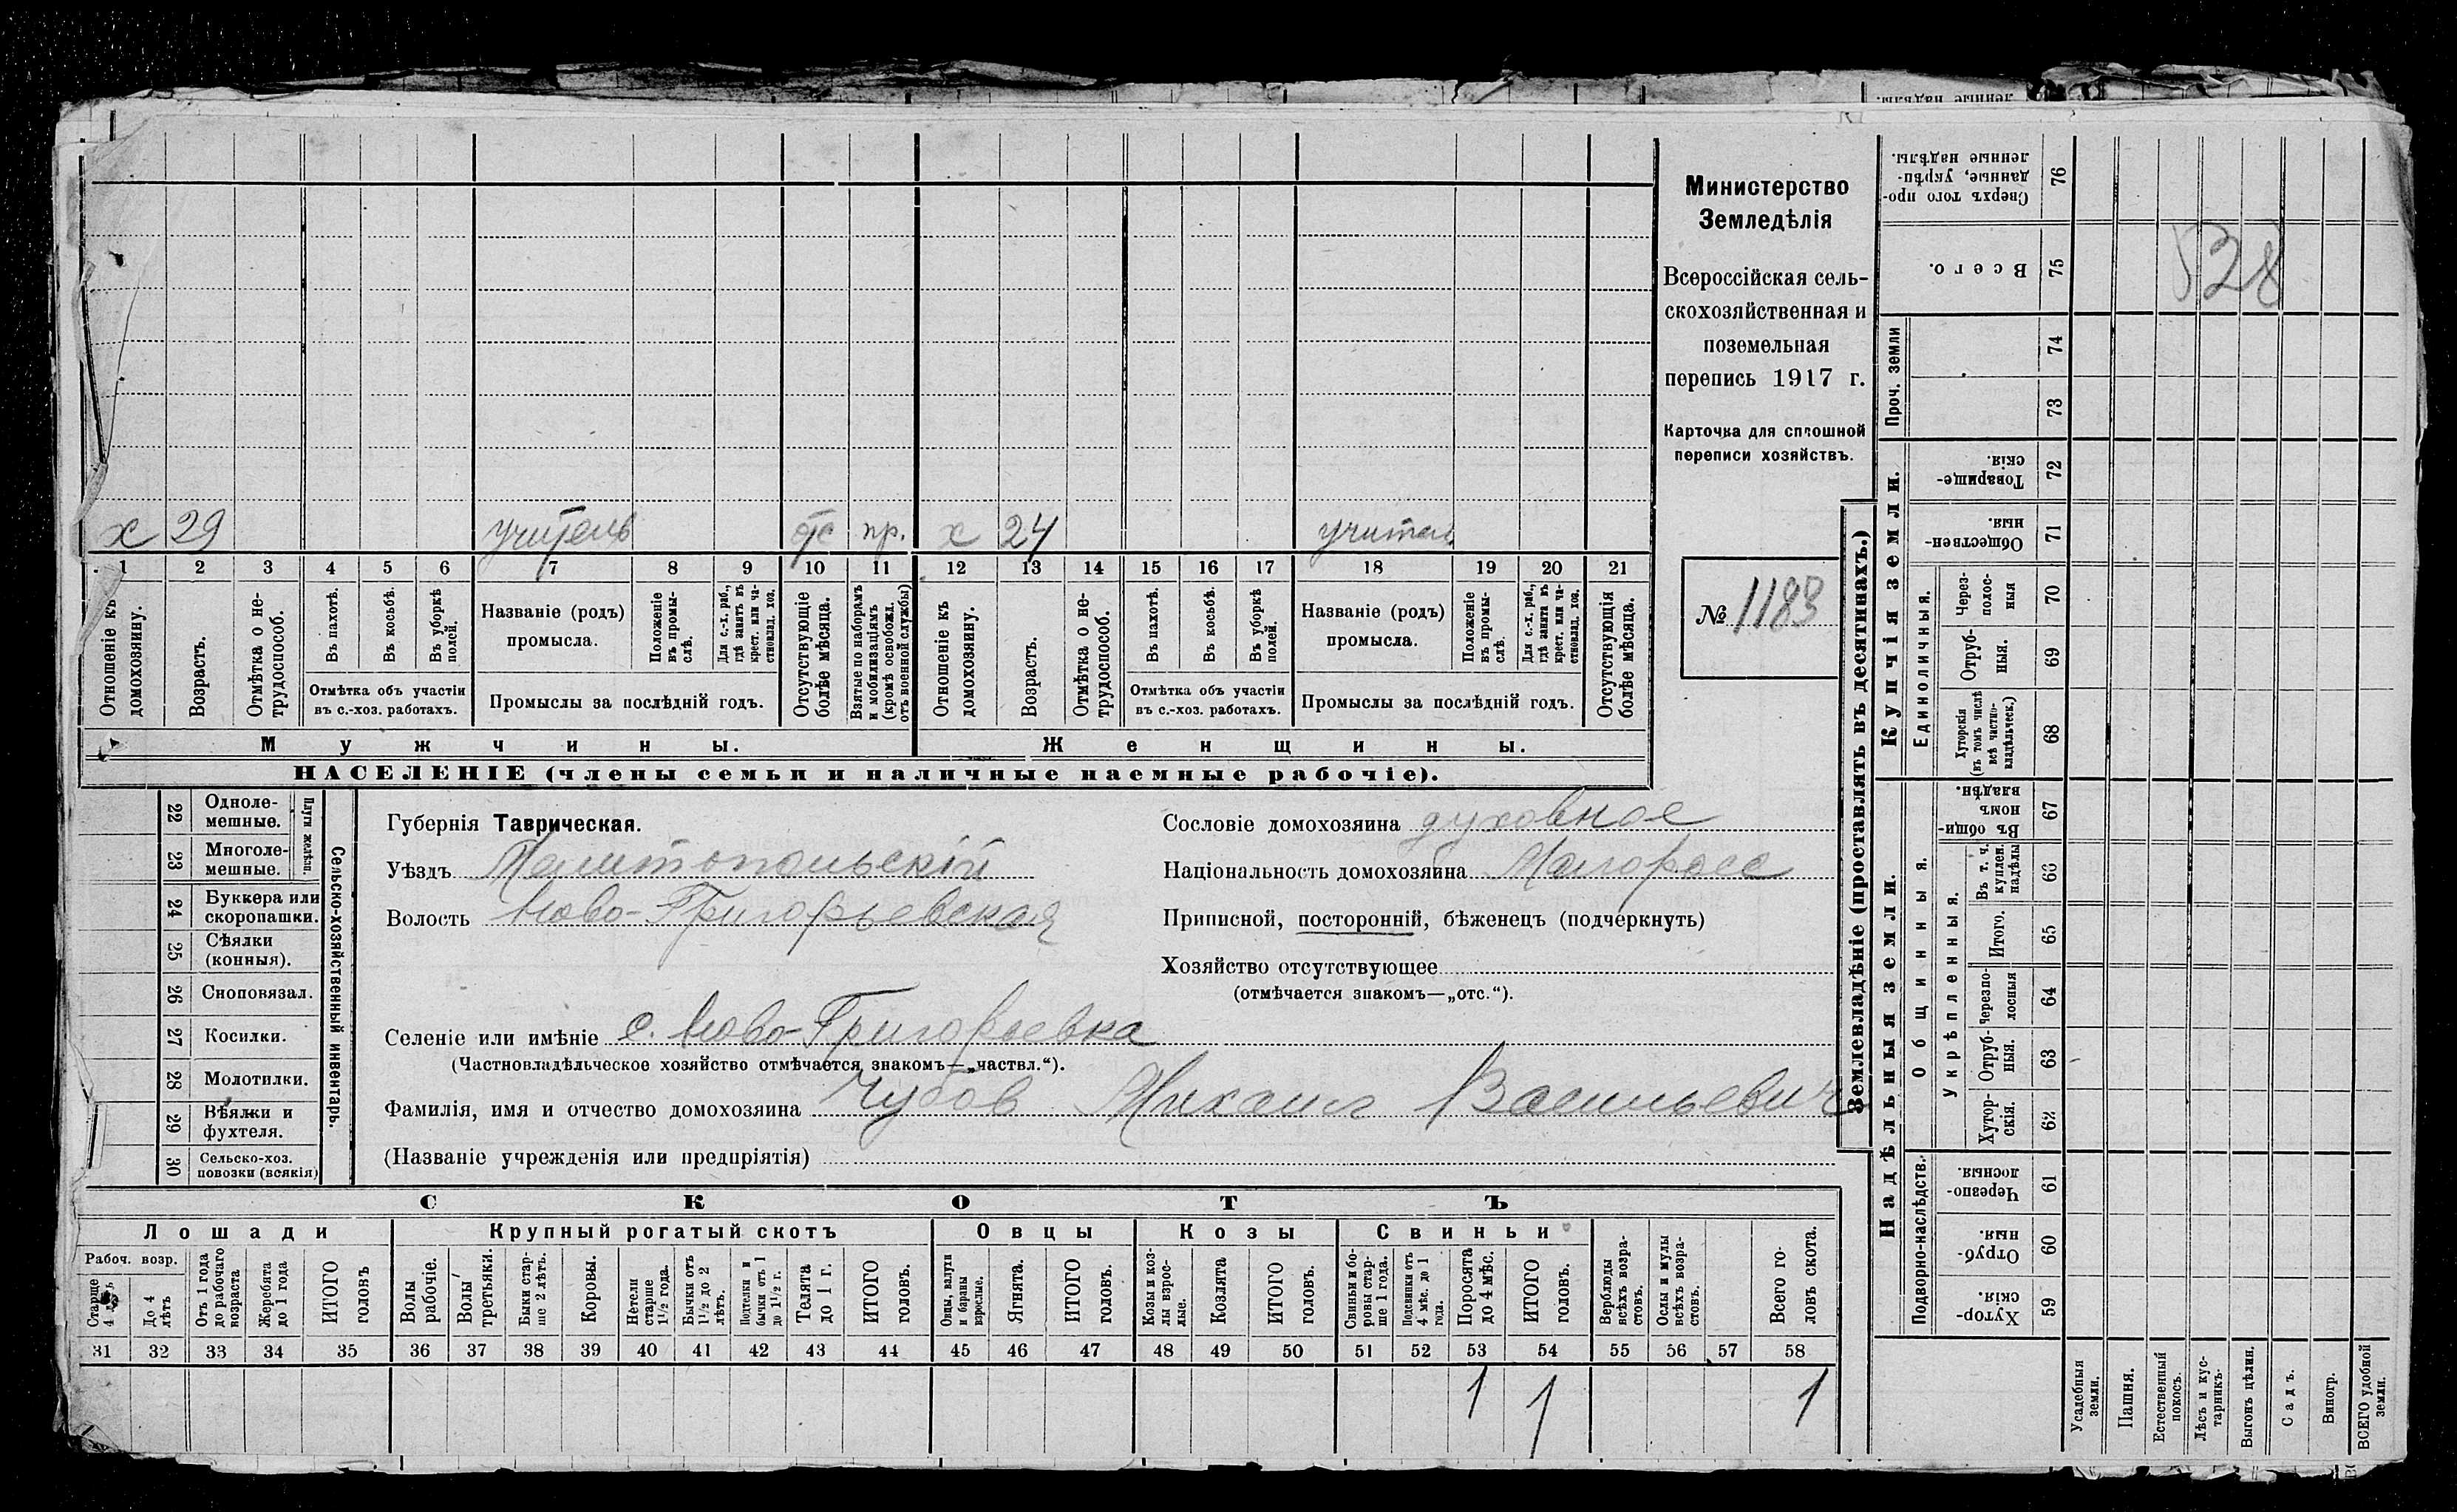 Министерство
Земледѣлія
Всероссійская сель-
скохозяйственная и
поземельная
перепись 1917 г.
Карточка для сплошной
переписи хозяйствъ.
№ 1183
х 29 учитель отс пр. х 24 учител
1 2 3 4 5 6 7 8 9 10 11 12 13 14 15 16 17 18 19 20 21
Отношеніе къ домохозяину.
Возрастъ.
Отмѣтка о не-трудоспособ.
Въ пахотѣ.
Въ косьбѣ.
Въ уборкѣ полей.
Отмѣтка объ участіи
въ с.-хоз. работахъ.
Названіе (родъ)
промысла.
Положеніе въ промы-слѣ.
Для с.-х. раб., гдѣ занятъ въ крест. или ча-стновлад. хоз.
Промыслы за послѣдній годъ.
Отсутствующіе болѣе мѣсяца.
Взятые по наборамъ и мобилизаціямъ (кромѣ освобожд. отъ военной службы)
Отношеніе къ домохозяину.
Возрастъ.
Отмѣтка о не-трудоспособ.
Въ пахотѣ.
Въ косьбѣ.
Въ уборкѣ полей.
Отмѣтка объ участіи
въ с.-хоз. работахъ.
Названіе (родъ)
промысла.
Положеніе въ промы-слѣ.
Для с.-х. раб., гдѣ занята въ крест. или ча-стновлад. хоз.
Промыслы за послѣдній годъ.
Отсутствующія болѣе мѣсяца.
Мужчины.
Женщины.
НАСЕЛЕНІЕ (члены семьи и наличные наемные рабочіе).
22 Одноле-мешные.
23 Многоле-мешные.
Плуги желѣзн.
24 Буккера или скоропашки.
25 Сѣялки (конныя).
26 Сноповязал.
27 Косилки.
28 Молотилки.
29 Вѣялки и фухтеля.
30 Сельско-хоз. повозки (всякія)
Сельско-хозяйственный инвентарь.
Губернія Таврическая.
Уѣздъ Мелитопольскій
Волость Ново-Григорьевская
Селеніе или имѣніе с. Ново-Григорьевка
(Частновладѣльческое хозяйство отмѣчается знакомъ—„частвл.“).
Фамилія, имя и отчество домохозяина Чубов Михаил Васильевич
(Названіе учрежденія или предпріятія)
Сословіе домохозяина духовное
Національность домохозяина Малоросс
Приписной, посторонній, бѣженецъ (подчеркнуть)
Хозяйство отсутствующее
(отмѣчается знакомъ—„отс.“).
СКОТЪ
Лошади
Крупный рогатый скотъ
Овцы
Козы
Свиньи
Рабоч. возр.
Старше 4 лѣтъ
До 4 лѣтъ
Отъ 1 года до рабочаго возраста
Жеребята до 1 года
ИТОГО головъ
Волы рабочіе.
Волы третьяки.
Быки стар-ше 2 лѣтъ.
Коровы.
Нетели старше 1½ года.
Бычки отъ 1½ до 2 лѣтъ.
Подтелки и бычки отъ 1 до 1½ г.
Телята до 1 г.
ИТОГО головъ.
Овцы, валухи и бараны взрослые.
Ягнята.
ИТОГО головъ.
Козы и коз-лы взрос-лые.
Козлята
ИТОГО головъ.
Свиньи и бо-ровы стар-ше 1 года.
Подсвинки отъ 4 мѣс. до 1 года.
Поросята до 4 мѣс.
ИТОГО головъ.
Верблюды всѣхъ возра-стовъ.
Ослы и мулы всѣхъ возра-стовъ.
Всего го-ловъ скота.
31 32 33 34 35 36 37 38 39 40 41 42 43 44 45 46 47 48 49 50 51 52 53 54 55 56 57 58
1 1 1
Землевладѣніе (проставлять въ десятинахъ.)
Сверхъ того про-данные, укрѣп-ленные надѣлы. 76
Всего. 75
528
Проч. земли
74
73
Купчія земли.
Товарище-скія. 72
Обществен-ныя. 71
Единоличныя.
Через-полос-ныя 70
Отруб-ныя. 69
Хуторскія (въ томъ числѣ всѣ частно-владѣльческ.) 68
Надѣльныя земли.
Общинныя.
Въ общин-номъ владѣн. 67
Укрѣпленныя.
Въ т. ч. куплен. надѣлы 66
Итого. 65
Черезпо-лосныя 64
Отруб-ныя. 63
Хутор-скія. 62
Подворно-наслѣдств.
Черезпо-лосныя. 61
Отруб-ныя. 60
Хутор-скія. 59
Усадебныя земли.
Пашня.
Естественный покосъ.
Лѣсъ и кус-тарникъ.
Выгонъ цѣлин.
Садъ.
Виногр.
ВСЕГО удобной земли.
ленные надѣлы.